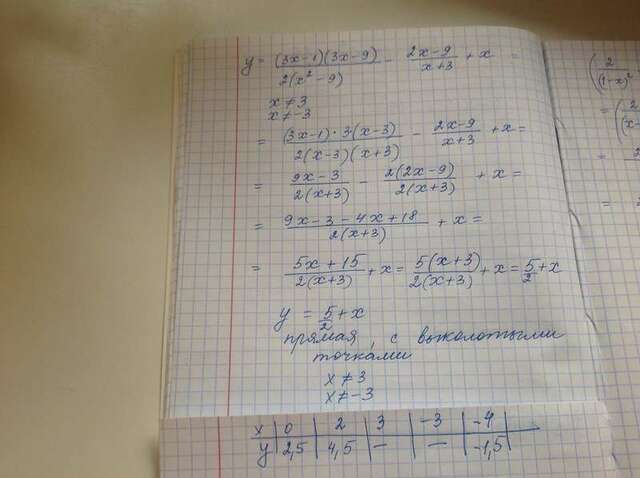 y = (3x-1)(3x-9)/2(x²-9) - 2x-9/x+3 + x =
x ≠ 3
x ≠ -3
= (3x-1)·3(x-3)/2(x-3)(x+3) - 2x-9/x+3 + x =
= 9x-3/2(x+3) - 2(2x-9)/2(x+3) + x =
= 9x-3-4x+18/2(x+3) + x =
= 5x+15/2(x+3) + x = 5(x+3)/2(x+3) + x = 5/2 + x
y = 5/2 + x
прямая, с выколотыми
точками
x ≠ 3
x ≠ -3
x | 0 | 2 | 3 | -3 | -4 |
y | 2,5 | 4,5 | — | — | -1,5 |
(2/(1-x)²
=
=
=